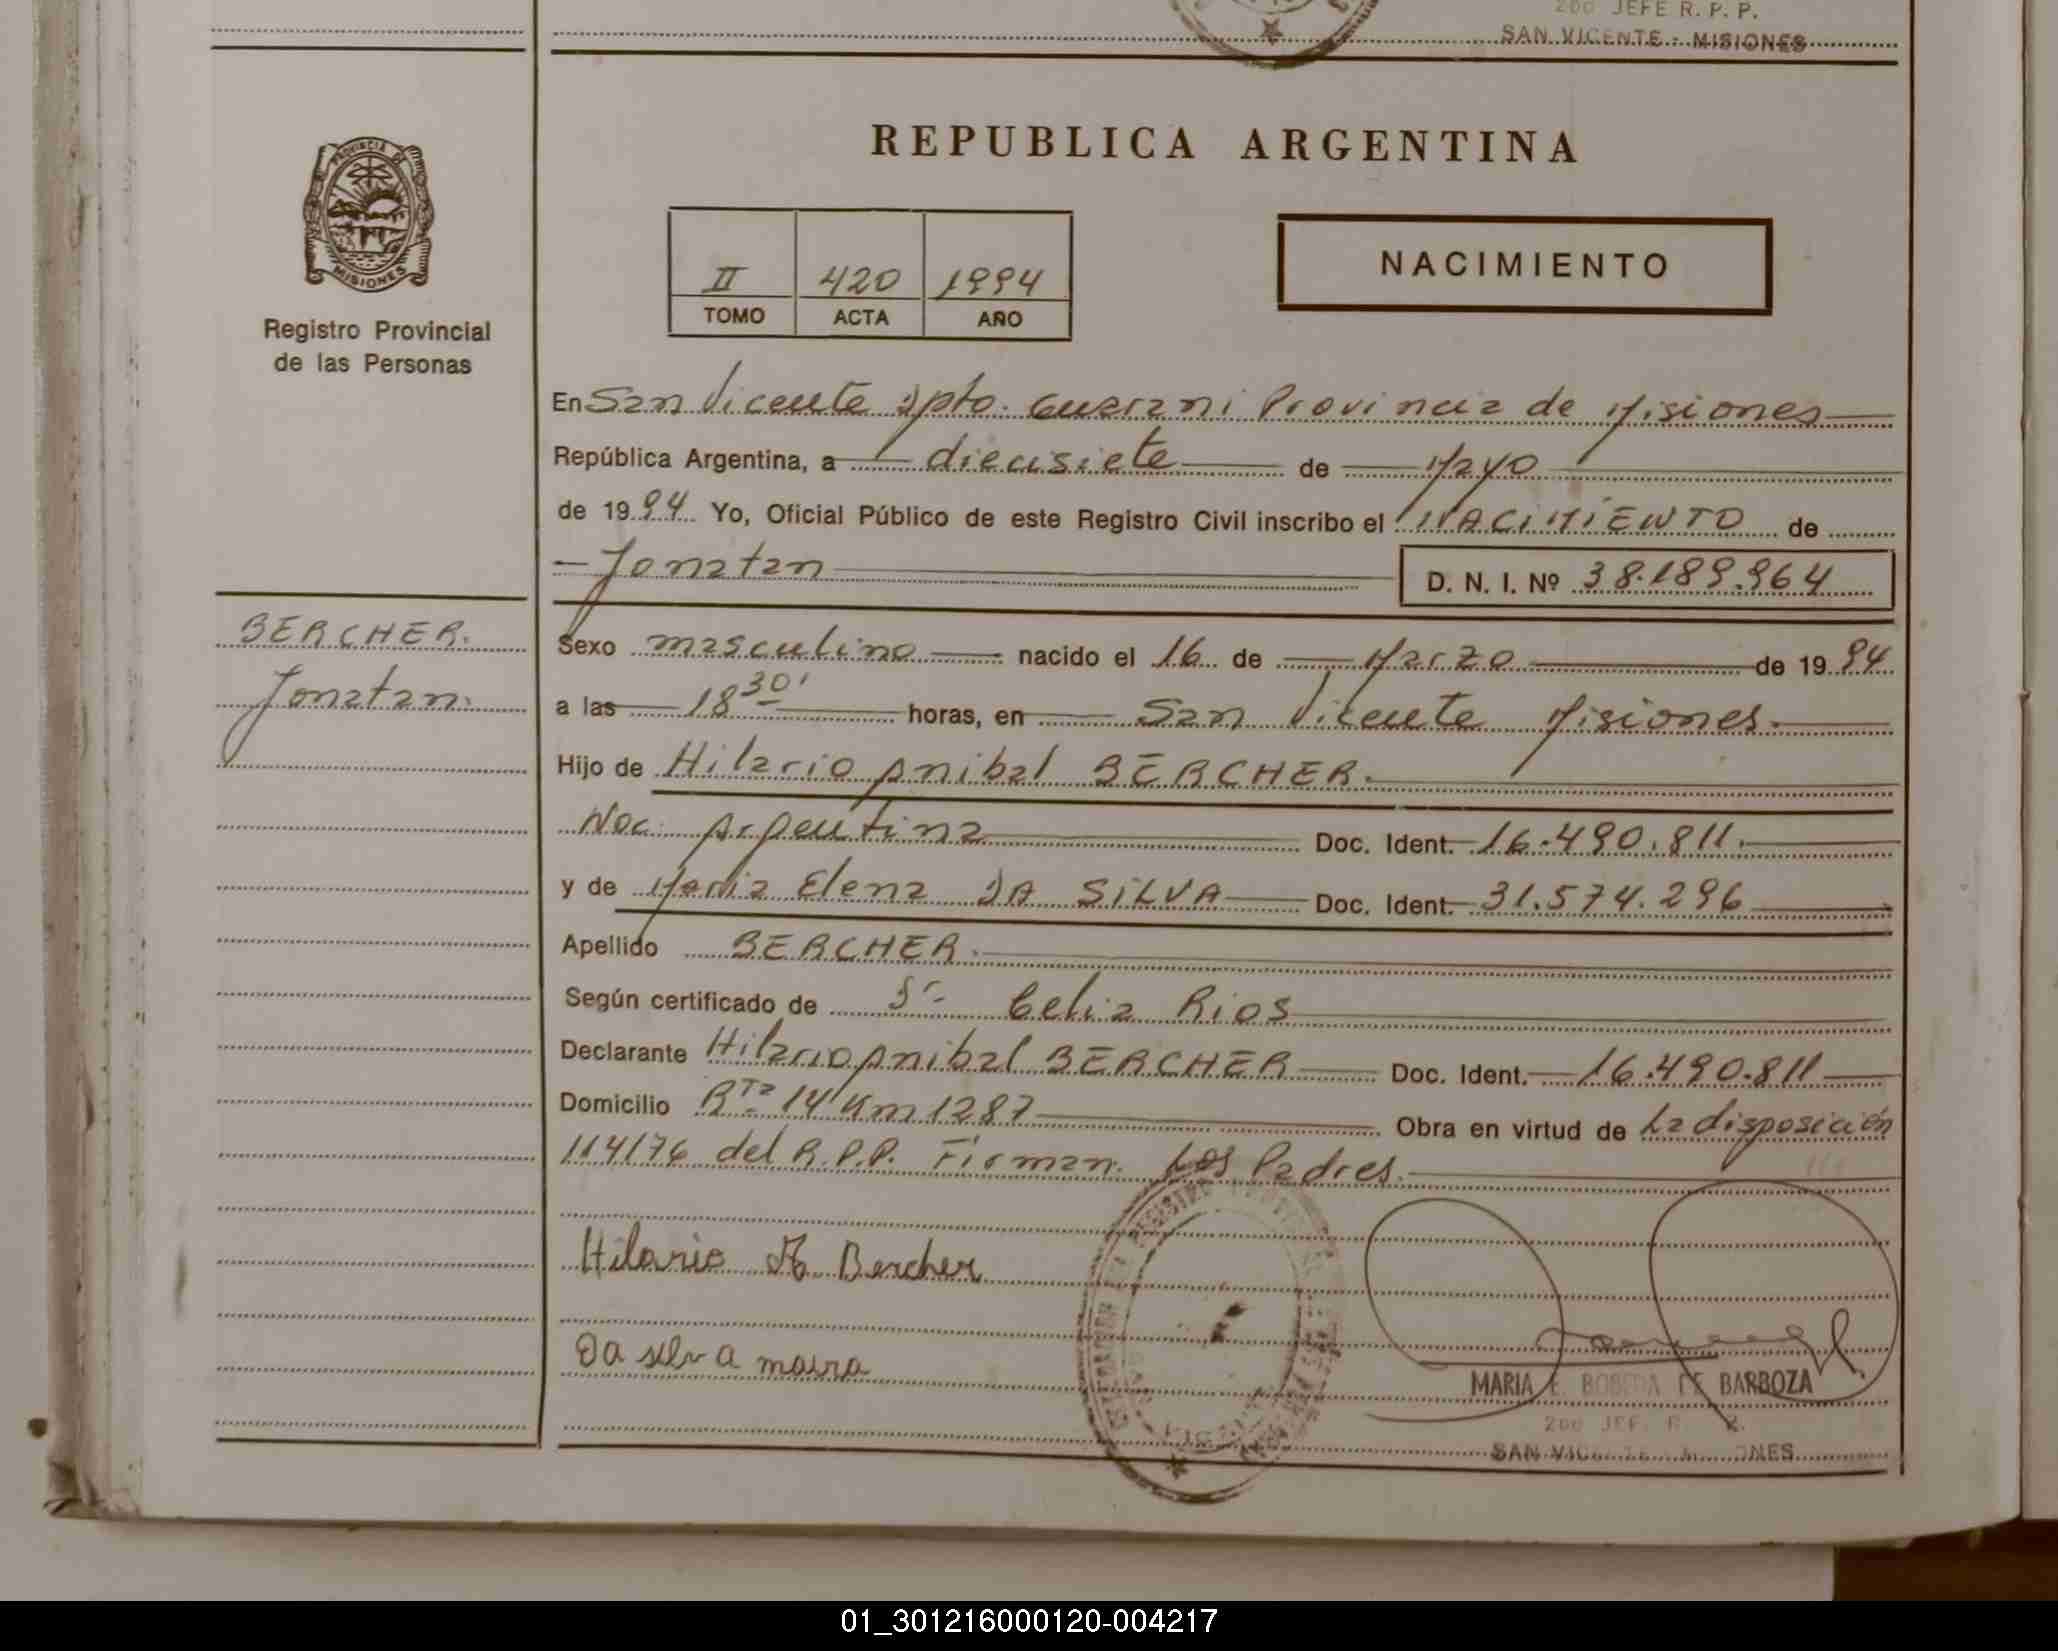 200 JEFE R. P. P.
SAN VICENTE - MISIONES
PROVINCIA DE
MISIONES
Registro Provincial
de las Personas
REPUBLICA ARGENTINA
II 420 1994
TOMO ACTA AÑO
NACIMIENTO
En San Vicente Dpto. Guarani Provincia de Misiones
República Argentina, a diecisiete de Mayo
de 1994 Yo, Oficial Público de este Registro Civil inscribo el NACIMIENTO de
Jonatan D. N. I. Nº 38.189.964
BERCHER.
Jonatan.
Sexo masculino nacido el 16 de Marzo de 1994
a las 18 30' horas, en San Vicente Misiones.
Hijo de Hilario Anibal BERCHER.
Nac. Argentina Doc. Ident. 16.490.811.
y de Maria Elena DA SILVA Doc. Ident. 31.574.296
Apellido BERCHER.
Según certificado de Sr- Celia Rios
Declarante Hilario Anibal BERCHER Doc. Ident. 16.490.811
Domicilio Rta 14 Km 1287 Obra en virtud de La disposición
114/76 del R.P.P. Firman. Los Padres.
Hilario A. Bercher
Da silva maira
MARIA E. BOBEDA DE BARBOZA
200 JEF. R.
SAN VICENTE
01_301216000120-004217